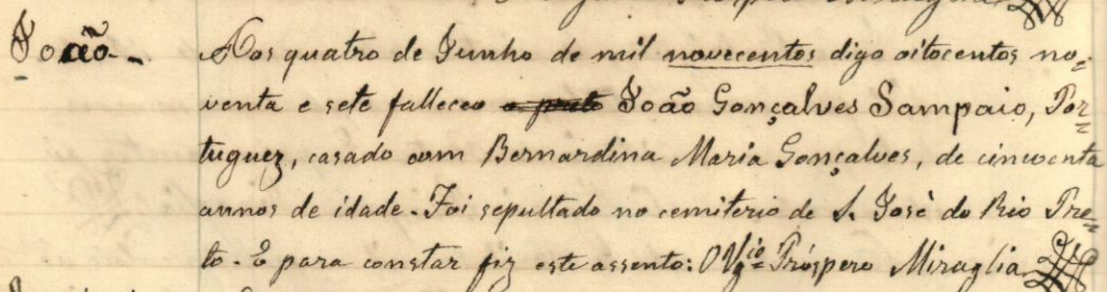 João--
Aos quatro de Junho de mil novecentos digo oitocentos no=
venta e sete falleceo o preto João Gonçalves Sampaio, Por=
tuguez, casado com Bernardina Maria Gonçalves, de cincoenta
annos de idade. Foi sepultado no cemiterio de S. José do Rio Pre=
to. E para constar fiz este assento: O Vgio= Próspero Miraglia